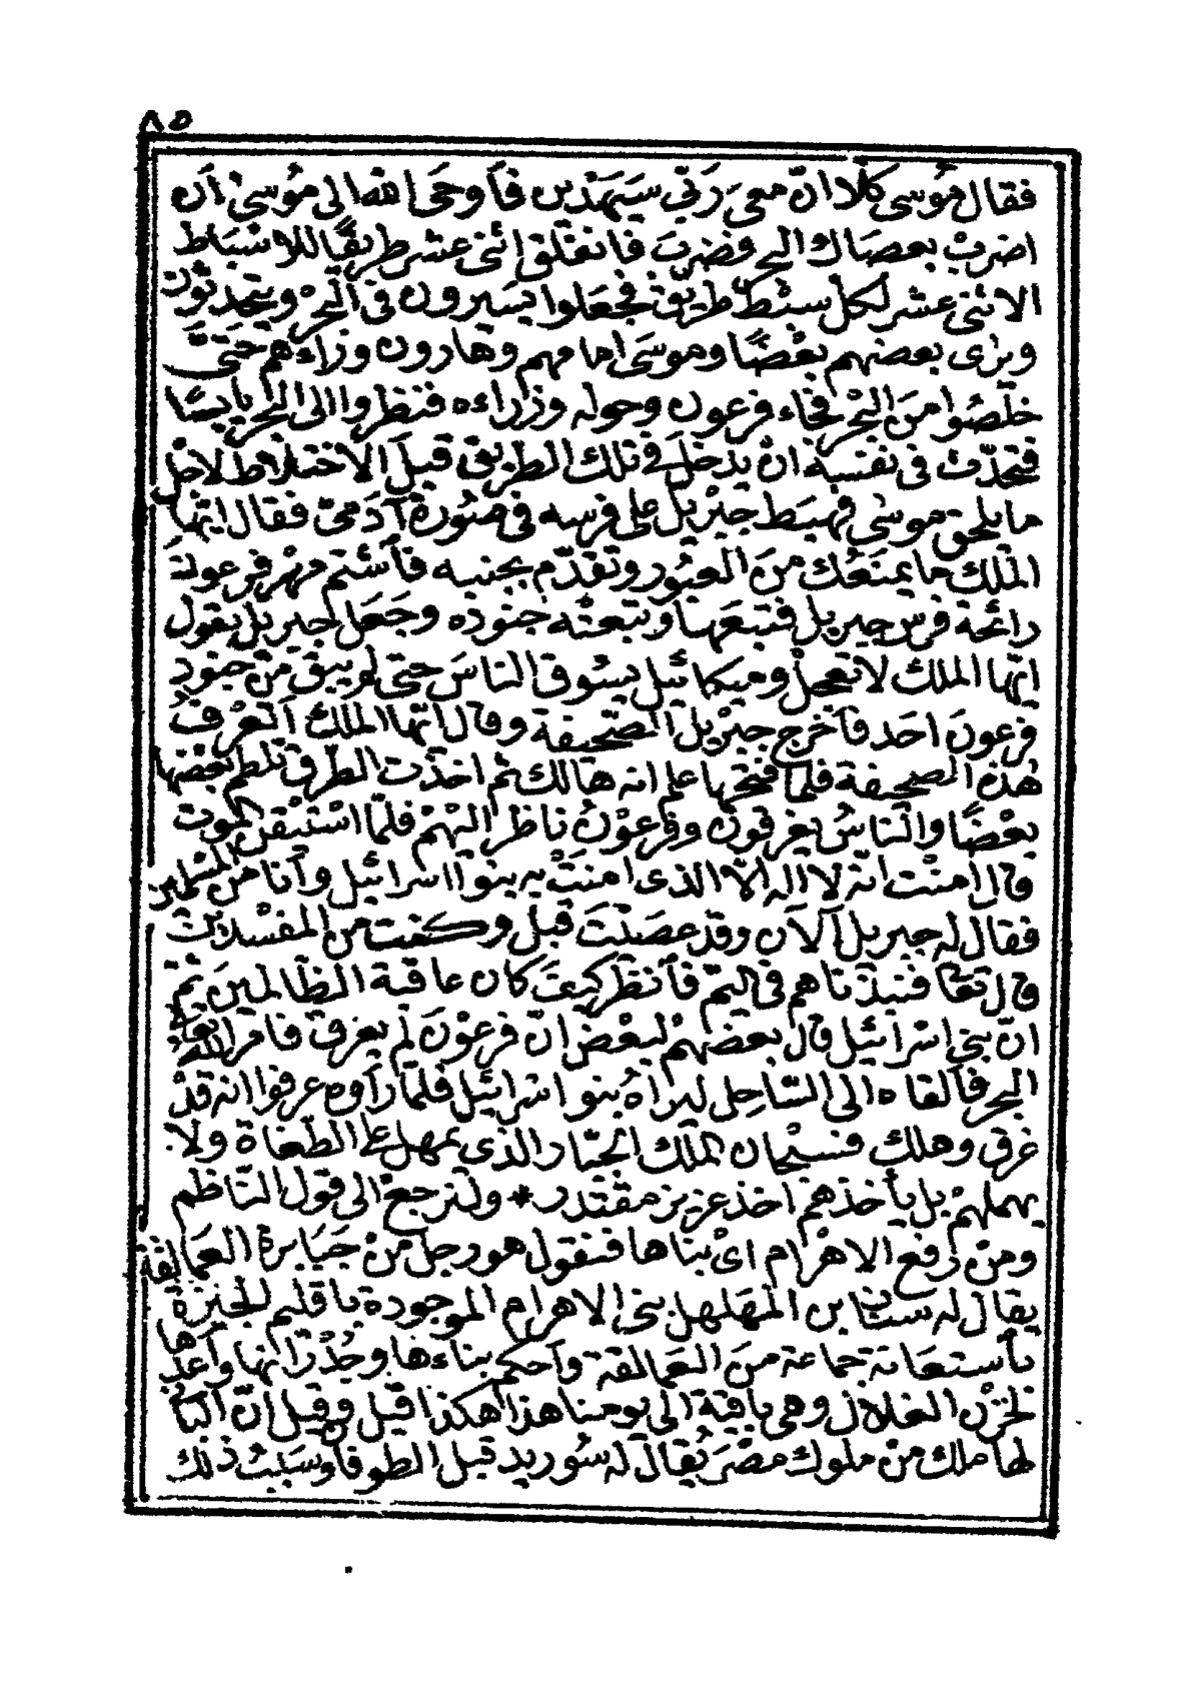 ٨٥
فقال مُوسى كلّا انّ معى رَبّي سَيَهْدين فأوحَى الله الى مُوسى أن
اضربْ بعصَاك البحر فضربَ فانفلق اثنى عشر طريقًا للاسْبَاط
الاثنى عشر لكل سبْط طريق فجعَلوا يسيرون فى البحْر ويتحدثون
ويرى بعضهم بعْضًا وموسَى امامهم وهارون وراءهم حَتّى
خلَصُوا منَ البحْر فجاء فرعون وحوله وزراءه فنظروا الى البحر يابسًا
فتحدّث فى نفسه انْ يدخلَ فى تلك الطريق قبلَ الاختلاط لاجل
ما يلحق موسى فهبَط جبْريل على فرسه فى صُورة آدَمىّ فقال ايّها
الملك ما يمنَعُك منَ العبُور وتقدّم بجنبه فأشتم مهْر فرعونَ
رائحة فرس جبريل فتبعَها وتبعتْه جنوده وجَعَل جبريل يقول
ايّها الملك لا تعجلْ وميكائيل يسُوق الناسَ حتى لم يبق منْ جنود
فرعونَ احَد فأخرج جبْريل الصّحيفة وقال ايّها الملك أتعْرفُ
هٰذه الصحيفة فلما فتحها علم انه هالك ثم اخذت الطرق تلطم بعْضها
بعْضًا والنّاسُ يغرقون وفرعوْنُ ناظر اليْهمْ فلمّا اسْتيْقن الموت
قال اٰمنْت انّه لا اله الّا الذى اٰمنَتْ به بنوا اسرائيل وأنا من المسْلمين
فقال له جبريل آلآن وقدْ عصَيْتَ قبل وكنت من المفسدين
قال تعَا فنبذناهم فى اليَمّ فأنظر كيفَ كان عاقبة الظّالمينَ ثمّ
انّ بنى اسْرائيل قال بعضهُمْ لبعْض انّ فرعوْنَ لم يغرق فامر الله تعا
البحر فألقاه الى السّاحل ليراهُ بنو اسْرائيل فلمّا رأوه عرفوا انه قدْ
غرق وهلك فسبْحان الملك الجبّار الذى يمهل على الطّغاة ولا
يهملهمْ بل يأخذهمْ اخذ عزيز مقتدر * ولنرجعْ الى قول النّاظم
ومنْ رفع الاهْرام اىْ بناها فنقول هو رجل منْ جَبَابرة العمالقة
يقال له سنان بن المهَلهل بنى الاهرام الموجودة باقليم الجيزة
بأستعانة جماعة منَ العَمالقة وأحكم بناءها وجُدْرانها وأعدّها
لخزْن الغلال وهى باقية الى يومنا هذا هكذا قيل وقيل انّ البانى
لها ملك منْ ملوك مصْرَ يُقال له سُوريد قبل الطوفان وسَببُ ذلك